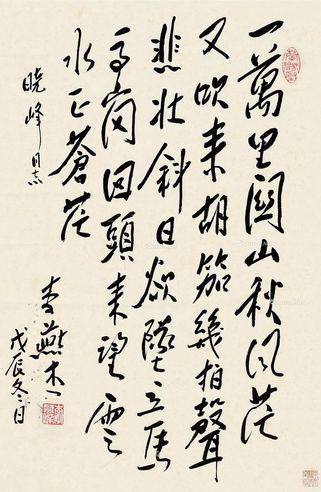 一萬里關山秋風茫
又吹來胡笳幾拍聲
悲壯斜日欲墜立馬
高岗回頭來望雲
水正蒼茫
晓峰同志
李燕杰
戊辰冬日